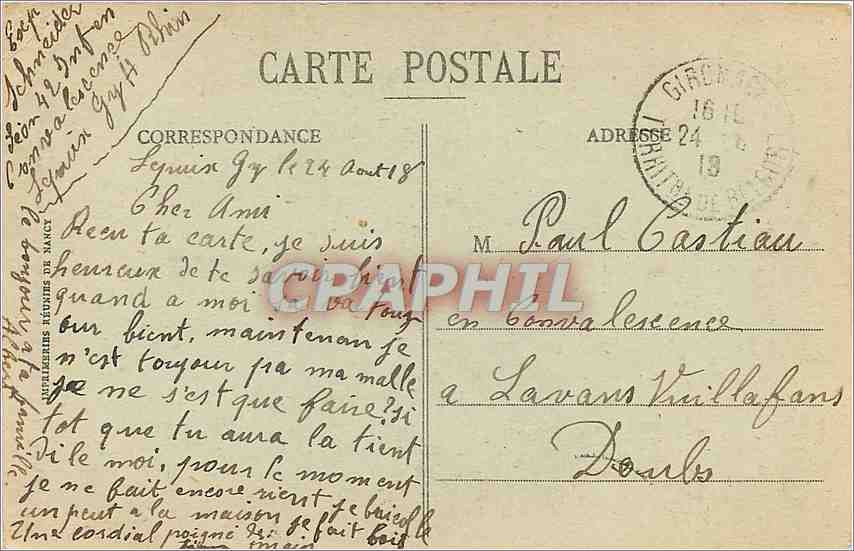 Exp
Schneider
Léon 42 Infen
Convalescence
Lepuix Gy Ht Rhin
CARTE POSTALE
CORRESPONDANCE
ADRESSE
GIROMAGNY
16
24 8
18
Lepuix Gy le 24 Aout 18
Cher Ami
Recu ta carte, je suis
heureux de te savoir bient
quand a moi sa va touj
our bient, maintenan je
n'est toujour pa ma malle
je ne s'est que faire? si
tot que tu aura la tient
di le moi, pour le moment
je ne fait encore rient, je bricolle
un peut a la maison, je fait
Une cordial poigné de
main
le bonjour a ta famille.
Albert
IMPRIMERIES RÉUNIES DE NANCY
M Paul Castiau
en Convalescence
a Lavans Vuillafans
Doubs
CPAPHIL